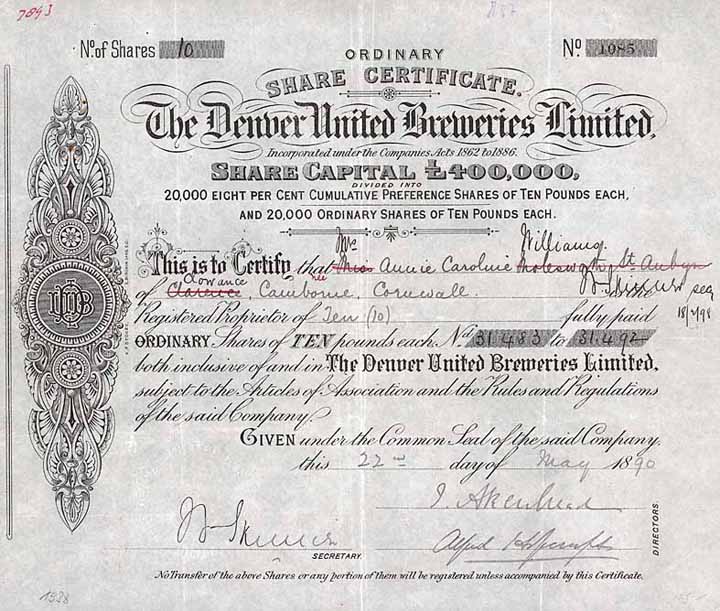 7893
No. of Shares 10
No. 1985
ORDINARY
SHARE CERTIFICATE.
The Denver United Breweries Limited,
Incorporated under the Companies Acts 1862 to 1886.
SHARE CAPITAL £400,000,
DIVIDED INTO
20,000 EIGHT PER CENT CUMULATIVE PREFERENCE SHARES OF TEN POUNDS EACH,
AND 20,000 ORDINARY SHARES OF TEN POUNDS EACH.
Mrs Williams
This is to Certify that Miss Annie Caroline Molesworth St. Aubyn
Clowance nee W Skinner sec
of Clarence, Camborne, Cornwall. is the
18/7/98
Registered Proprietor of Ten (10) fully paid
ORDINARY Shares of TEN pounds each. Nos. 31.483 to 31.492
both inclusive of and in The Denver United Breweries Limited,
subject to the Articles of Association and the Rules and Regulations
of the said Company.
GIVEN under the Common Seal of the said Company,
this 22nd day of May 1890
W Skinner
SECRETARY.
Alfred
DIRECTORS
No Transfer of the above Shares or any portion of them will be registered unless accompanied by this Certificate.
1928